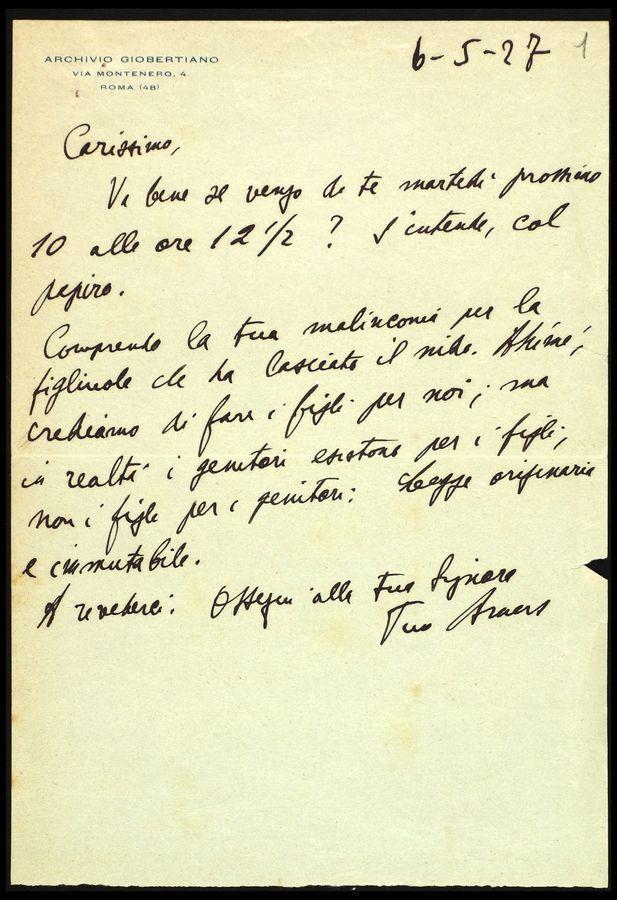 ARCHIVIO GIOBERTIANO
VIA MONTENERO, 4
ROMA (48)
6-5-27
1
Carissimo,
Va bene se vengo da te martedì prossimo
10 alle ore 12 1/2 ? S'intende, col
papiro.
Comprendo la tua malinconia per la
figliuola che ha lasciato il nido. Ahimé,
crediamo di fare i figli per noi; ma
in realtà i genitori esistono per i figli,
non i figli per i genitori: Legge originaria
e immutabile.
A rivederci. Ossequi alla tua Signora
Tuo